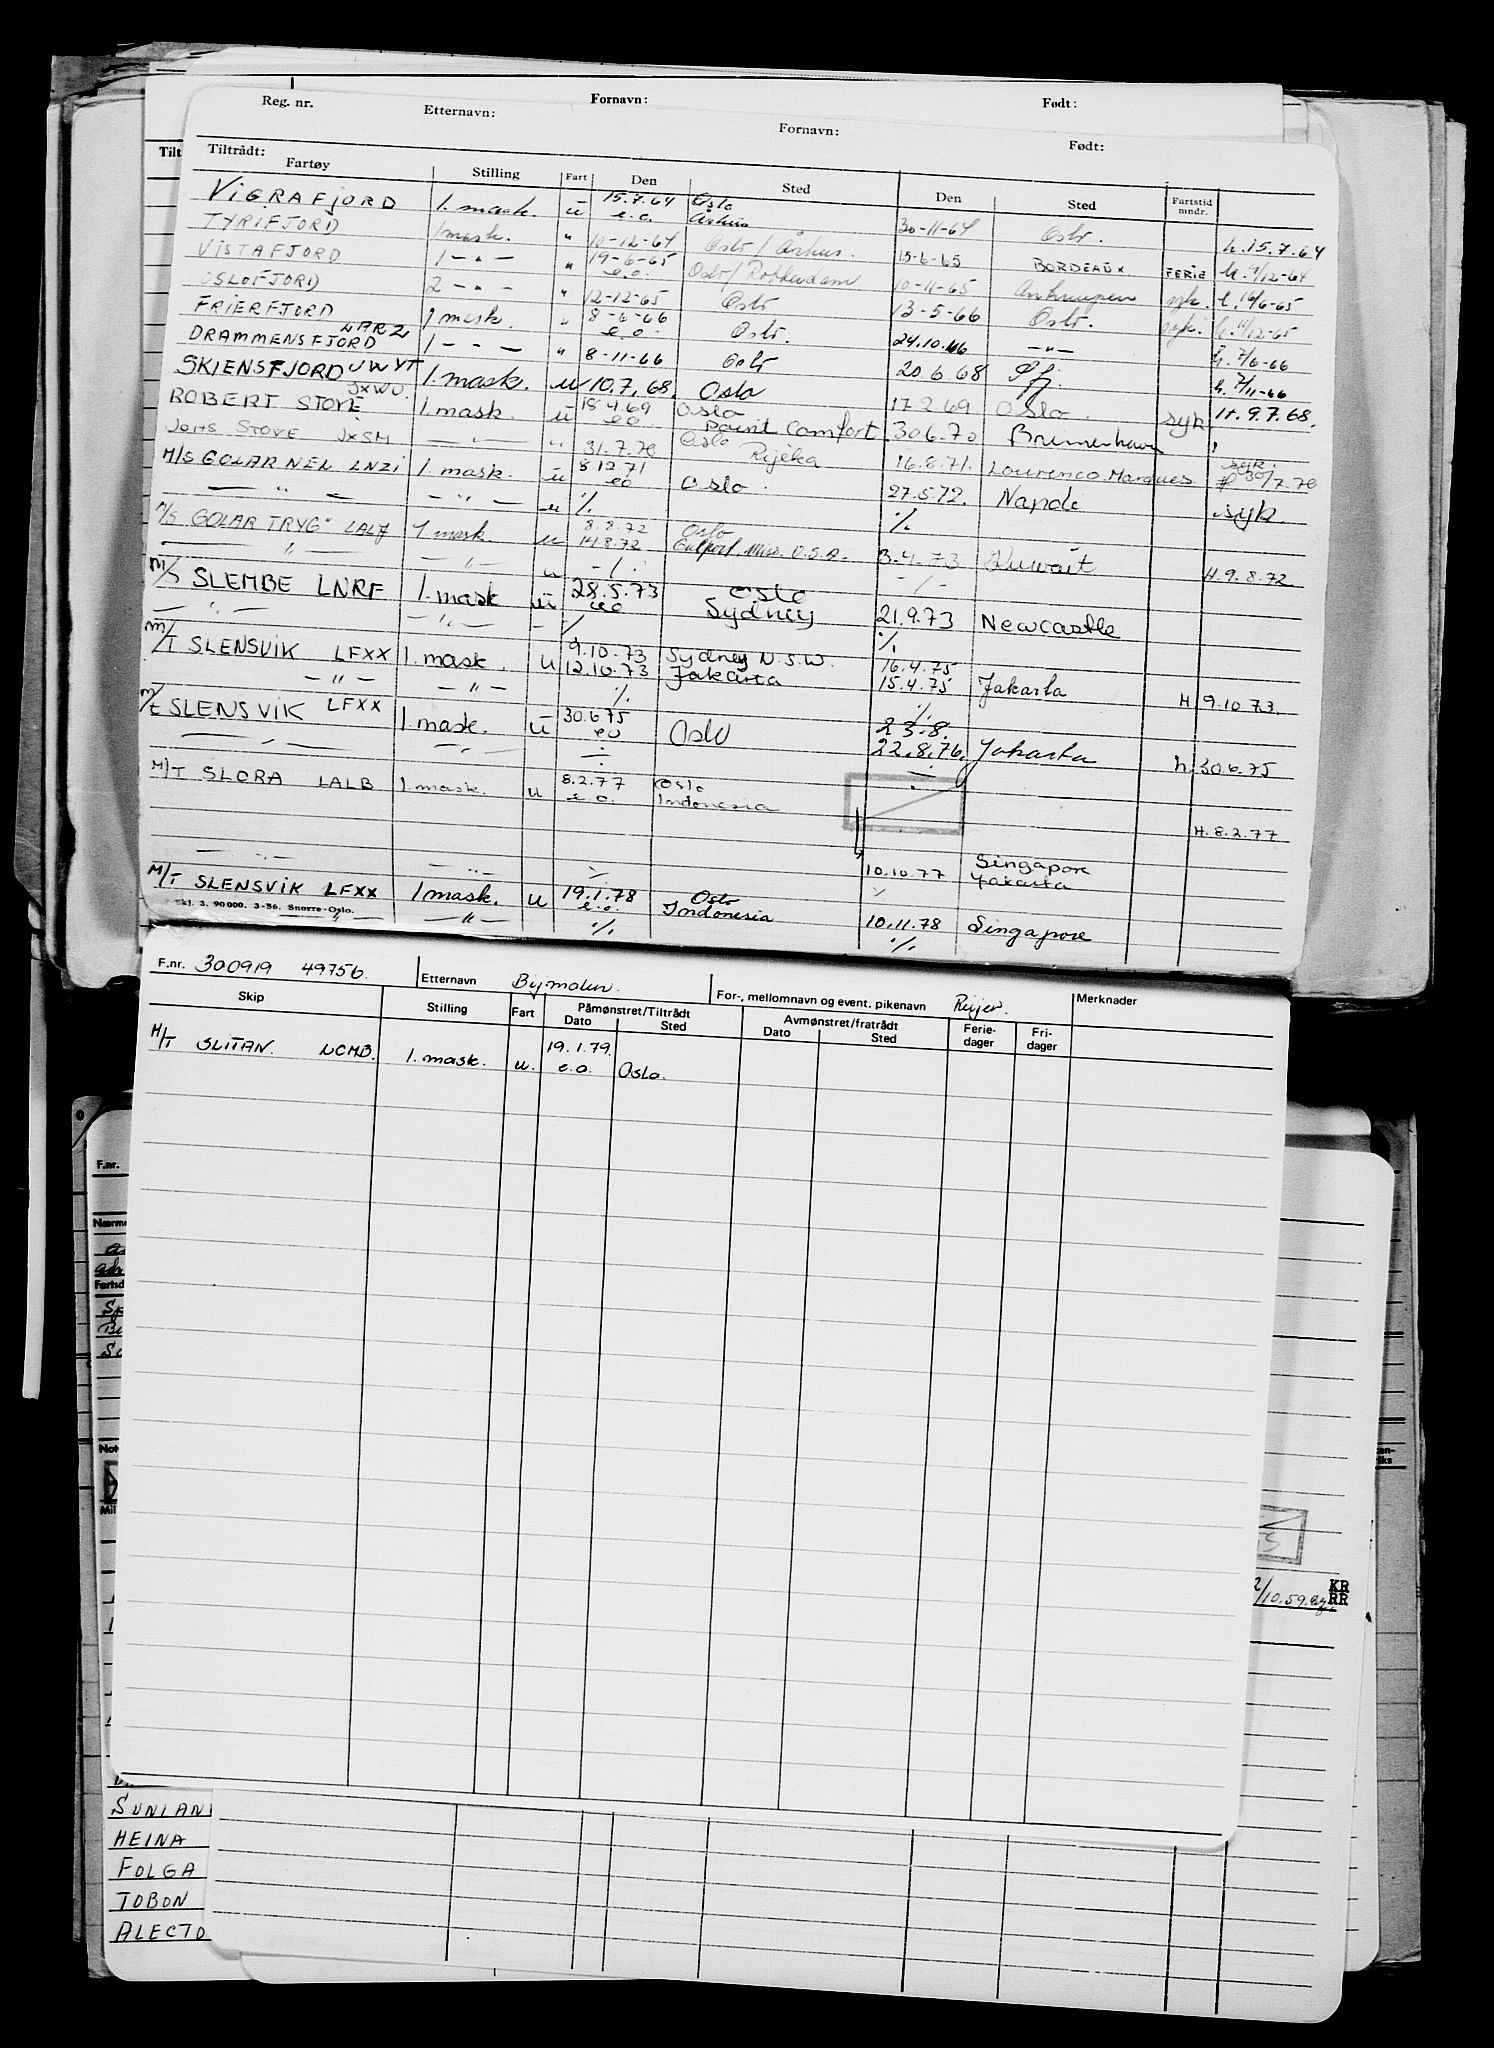 Reg. nr. Fornavn: Født:
Etternavn: Fornavn: Født:
Tiltrådt:
Fartøy Stilling Fart Den Sted Den Sted Fartstid mndr.
VIGRAFJORD 1. mask. u 15.7.64 e.o. Oslo Århus 30-11-64 Oslo. h. 15.7.64
TYRIFJORD 1 mask. " 10-12-64 Oslo / Århus. 15-6-65 BORDEAUX FERIE h. 9/12-64
VISTAFJORD 1 - " - " 19-6-65 e.o. Oslo/ Rotterdam 10-11-65 Antwerpen syk. h. 16/6-65
OSLOFJORD 2 - " - " 12-12-65 Oslo 13-5-66 Oslo. syk.
FRIERFJORD LARZ 1 mask. " 8-6-66 e.o. Oslo. 24.10.66 - " - h. 7/6-66
DRAMMENSFJORD 1 - - - " 8-11-66 Oslo 20.6.68 h. 7/11-66
SKIENSFJORD JWVT 1. mask. u 10.7.68. Oslo 17.2.69 Oslo. syk H. 9.7.68.
ROBERT STOVE JXWU. 1. mask. u 18.4.69 eo Oslo Point Comfort 30.6.70 Bremerhaven
JOHS STOVE JXSM - " - " 31.7.70 Oslo Rijeka 16.8.71. Lourenco Marques syk. 30/7.70
M/S GOLAR NEL LNZI 1. mask. u 8.12.71 eo Oslo. 27.5.72. Napoli syk.
- " - - " - u %. %.
M/S GOLAR TRYG" LALJ 1 mask. u 8.8.72 14.8.72 Oslo Gulport, Miss. U.S.A. 3.4.73 Kuwait H. 9.8.72
- " - - " - u
M/S SLEMBE LNRF 1. mask u 28.5.73 eo Oslo Sydney 21.9.73 Newcastle
- " - - " - - %. %.
M/T SLENSVIK LFXX 1. mask. u 9.10.73 12.10.73 Sydney N.S.W. Jakarta 16.4.75 15.4.75 Jakarta H 9.10.73.
- " - - " - %. %.
M/T SLENSVIK LFXX 1. mask. u 30.6.75 eo Oslo 23.8. 22.8.76. Jakarta h. 30.6.75
- " - - " -
M/T SLORA LALB 1. mask. u 8.2.77 e.o. Oslo Indonesia H. 8.2.77
- " - - " - 10.10.77 Singapore Jakarta
M/T SLENSVIK LFXX 1 mask. u 19.1.78 e.o. Oslo Indonesia 10.11.78 Singapore
Skl. 3. 90000. 3-56. Snorre-Oslo. - " - - " - %. %.
F.nr. 300919 49756. Etternavn For-, mellomnavn og event. pikenavn Merknader
Skip Stilling Fart Påmønstret/Tiltrådt Avmønstret/fratrådt Ferie- Fri-
Dato Sted Dato Sted dager dager
M/T SLITAN. LCMB. 1. mask. u. 19.1.79. e.o. Oslo.
F.nr.
Nærme
Fartsd
Not
Mil
KR
/10.59. RR
SUNLAN
HEINA
FOLGA
TOBON
ALECTO